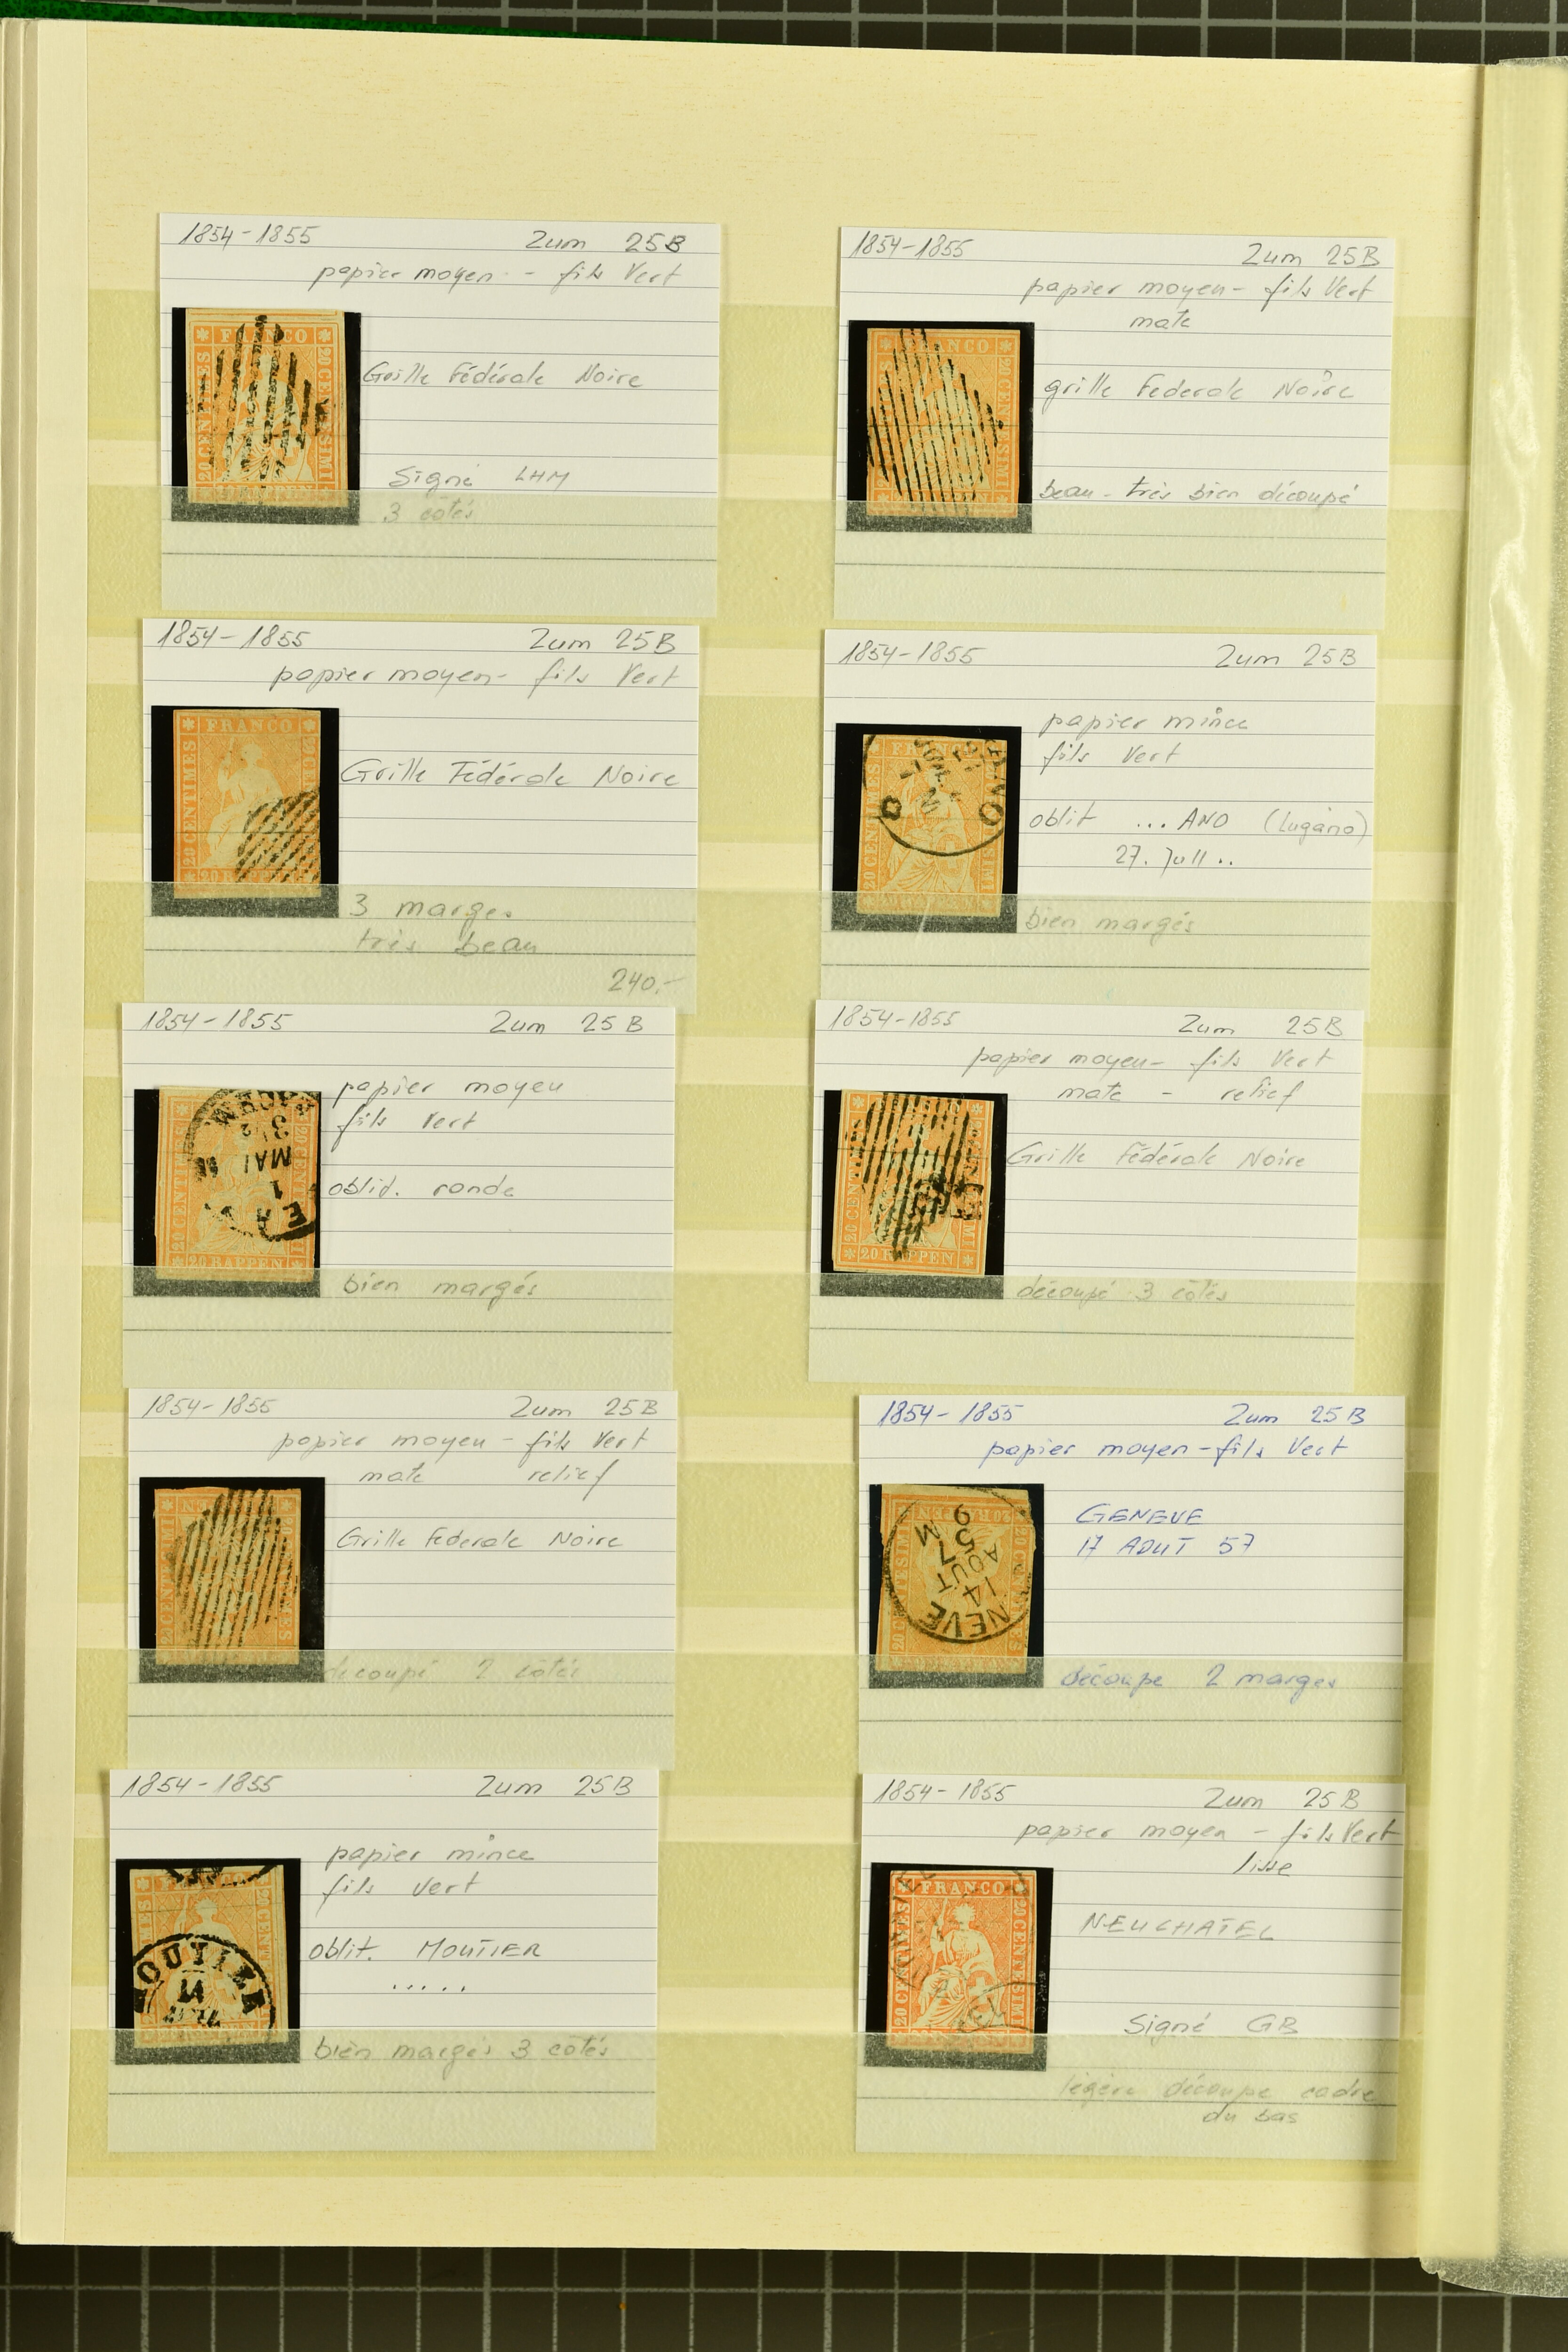 1854-1855 Zum 25B
papier moyen - fils Vert
FRANCO
20 CENTIMES
20 CENTESIMI
Grille Fédérale Noire
Signé LHM
3 côtés
1854-1855 Zum 25B
papier moyen - fils Vert
mate
FRANCO
grille Federale Noire
beau - très bien découpé
1854-1855 Zum 25B
papier moyen - fils Vert
FRANCO
20 CENTIMES
20 RAPPEN
Grille Fédérale Noire
3 marges
très beau
240.-
1854-1855 Zum 25B
papier mince
fils Vert
FRANCO
20 CENTIMES
oblit ... ANO (Lugano)
27. Jull ..
bien margés
1854-1855 Zum 25B
papier moyen
fils Vert
MAI
20 RAPPEN
oblit. ronde
bien margés
1854-1855 Zum 25B
papier moyen - fils Vert
mate - relief
20 RAPPEN
Grille Fédérale Noire
découpé 3 côtés
1854-1855 Zum 25B
papier moyen - fils Vert
mate relief
Grille Federale Noire
découpé 2 côtés
1854-1855 Zum 25B
papier moyen - fils Vert
NEVE
14
AOUT
57
GENEVE
17 AOUT 57
découpe 2 marges
1854-1855 Zum 25B
papier mince
fils Vert
MOUTIER
14
oblit. MOUTIER
.....
bien margés 3 côtés
1854-1855 Zum 25B
papier moyen - fils Vert
lisse
FRANCO
20 CENTIMES
20 CENTESIMI
NEUCHATEL
Signé GB
légère découpe cadre
du bas